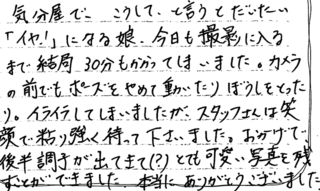 気分屋で、こうして、と言うとだいたい
「イヤ!」になる娘、今日も撮影に入る
まで結局30分もかかってしまいました。カメラ
の前でもポーズをやめて動いたりぼうしをとった
り。イライラしてしまいましたが、スタッフさんは笑
顔で粘り強く待って下さいました。おかげで
後半調子が出てきて(?)とても可愛い写真を残
すことができました 本当にありがとうございました